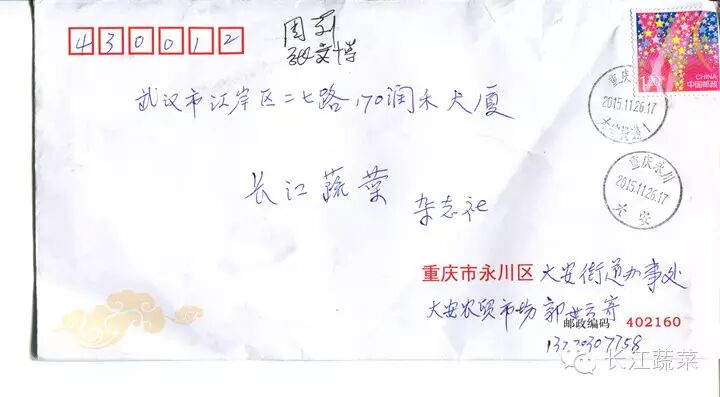 430012
周
武汉市江岸区二七路170润禾大厦
长江蔬菜 杂志社
CHINA
中国邮政
重庆永川
2015.11.26.17
重庆永川
2015.11.26.17
大安
重庆市永川区 大安街道办事处
大安农贸市场 郭世云寄
邮政编码 402160
长江蔬菜